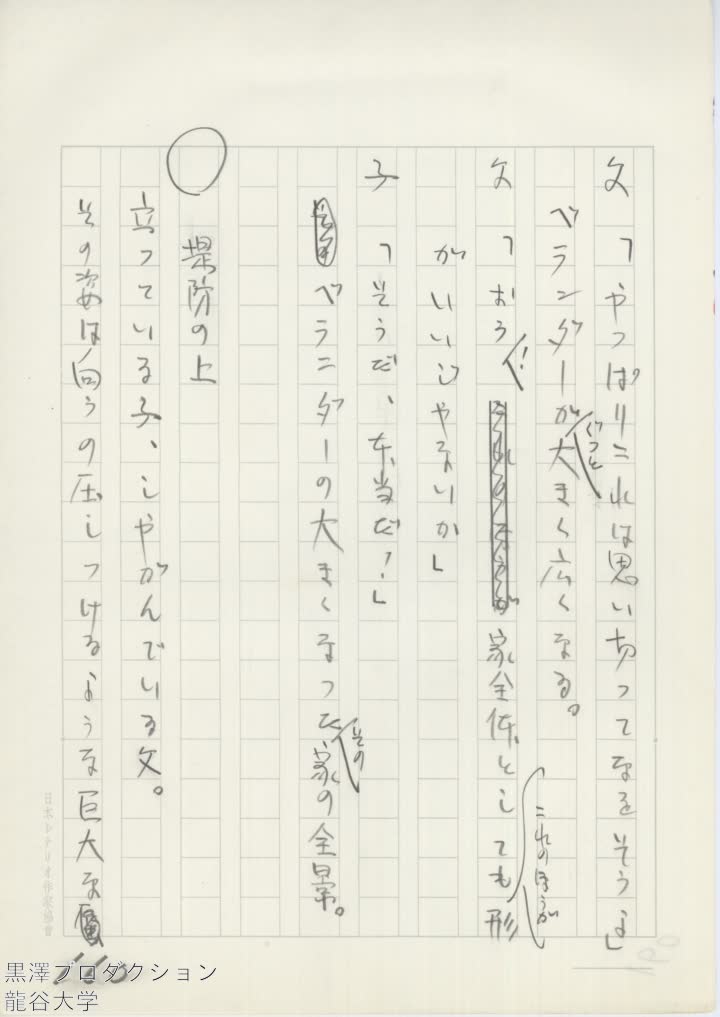 父「やっぱりこれは思い切ってなをそうよ」
ベランダーがぐっと大きく広くなる。
父「おう!家全体としてもこれのほうが形
がいいじゃないか」
子「そうだ、本当だ!」
ベランダーの大きくなったその家の全景。
○ 堤防の上
立っている子、しゃがんでいる父。
その姿は向うの圧しつけるような巨大な
日本シナリオ作家協会
黒澤プロダクション
龍谷大学